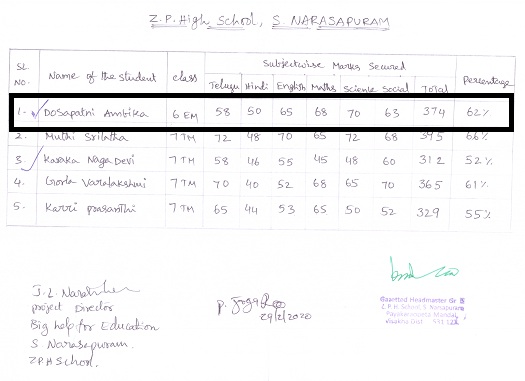 Z.P. High School, S. NARASAPURAM
SL NO. Name of the student class Subjectwise Marks Secured Percentage
Telugu Hindi English Maths Science Social Total
1. Dosapatni Ambika 6 EM 58 50 65 68 70 63 374 62%
2. Muthi Srilatha 7 TM 72 48 70 65 72 68 395 66%
3. Karaka Naga Devi 7 TM 58 46 55 45 48 60 312 52%
4. Gorla Varalakshmi 7 TM 70 40 52 68 65 70 365 61%
5. Karri prasanthi 7 TM 65 44 53 65 50 52 329 55%
J.L.
project Director
Big help for Education
S Narasapuram.
ZPH School.
29/2/2020
Gazetted Headmaster Gr. II
Z.P.H. School, S. Narsapuram
Payakaraopeta Mandal,
Visakha Dist